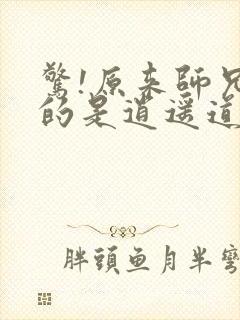 驚!原來師兄
的是逍遥道
胖頭鱼月半彎